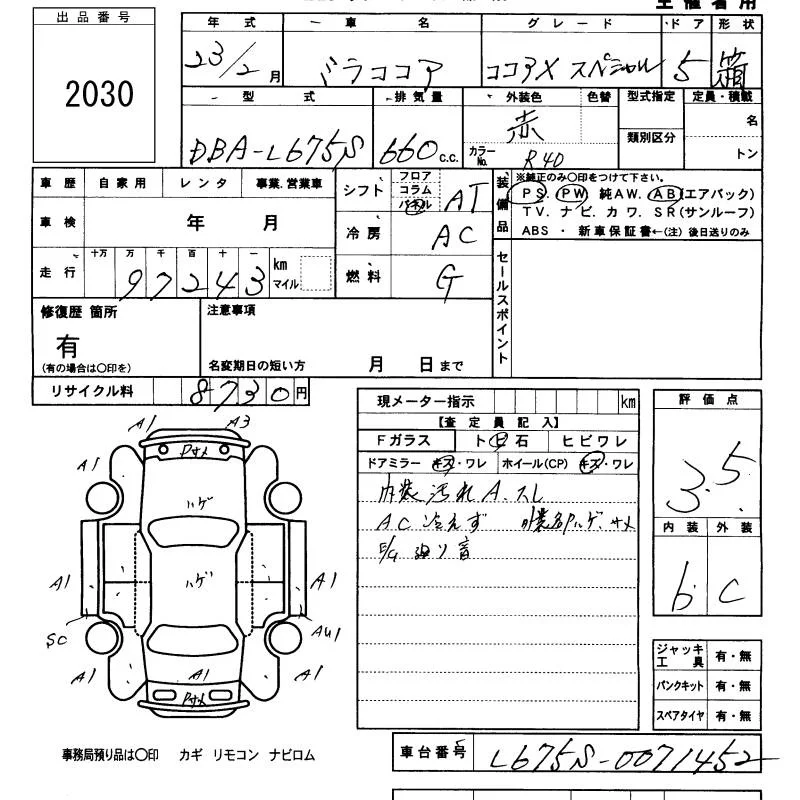 出品番号
2030
年式 車名 グレード ドア 形状
23/2月 ミラココア ココアX スペシャル 5 箱
型式 排気量 外装色 色替 型式指定 定員・積載
DBA-L675S 660c.c. 赤 カラーNo. R40 類別区分 名 トン
車歴 自家用 レンタ 事業.営業車
車検 年 月
走行 十万 万 千 百 十 一 km マイル
97243
シフト フロア コラム パネル AT
冷房 AC
燃料 G
装備品
※純正のみ〇印をつけて下さい。
PS PW 純AW. AB(エアバック)
TV. ナビ. カワ. SR(サンルーフ)
ABS ・ 新車保証書←(注) 後日送りのみ
セールスポイント
修復歴 箇所
有
(有の場合は〇印を)
注意事項
名変期日の短い方 月 日まで
リサイクル料 8730円
現メーター指示 km
【査定員記入】
Fガラス ト ビ 石 ヒビワレ
ドアミラー キズ・ワレ ホイール(CP) キズ・ワレ
内装汚れ A.スレ
AC 冷えず 外装色ハゲ サメ
E/G 廻り音
評価点
3.5
内装 外装
b C
ジャッキ 工具 有・無
パンクキット 有・無
スペアタイヤ 有・無
A1 A3
A1 Pサメ
ハゲ
A1 ハゲ A1
SC AU1
A1 A1 A1
Pサメ
事務局預り品は〇印 カギ リモコン ナビロム
車台番号 L675S-0071452